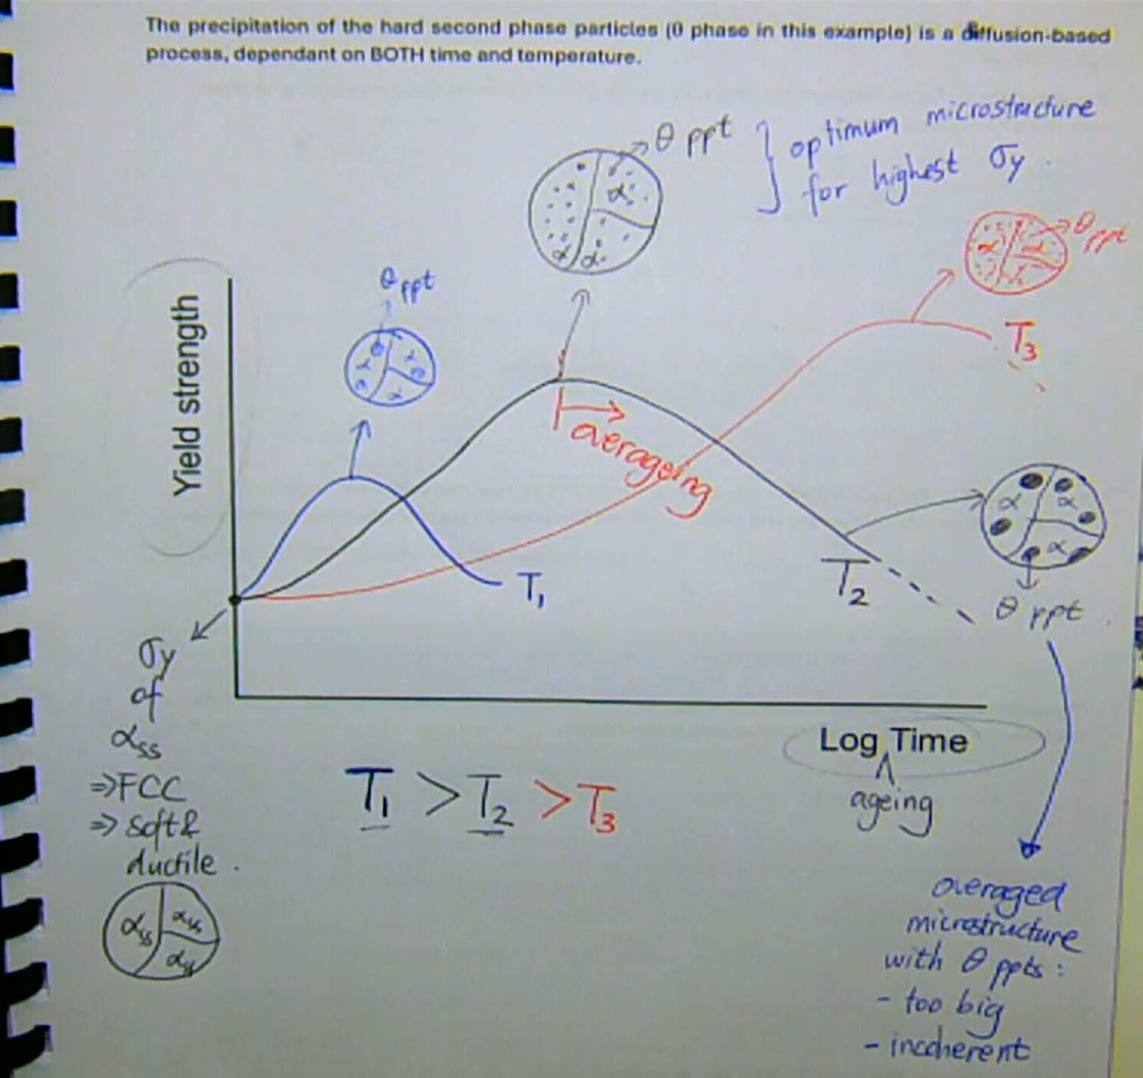 The precipitation of the hard second phase particles (θ phase in this example) is a diffusion-based
process, dependant on BOTH time and temperature.
θ ppt } optimum microstructure
for highest σy.
α
α α
θ ppt
α α
α
θ ppt
α α
T3
Yield strength
overageing
α α
α
θ ppt.
T1
T2
σy
of
αss
⇒ FCC
⇒ soft &
ductile.
αss αss
αss
Log Time
ageing
T1 > T2 > T3
overaged
microstructure
with θ ppts:
- too big
- incoherent